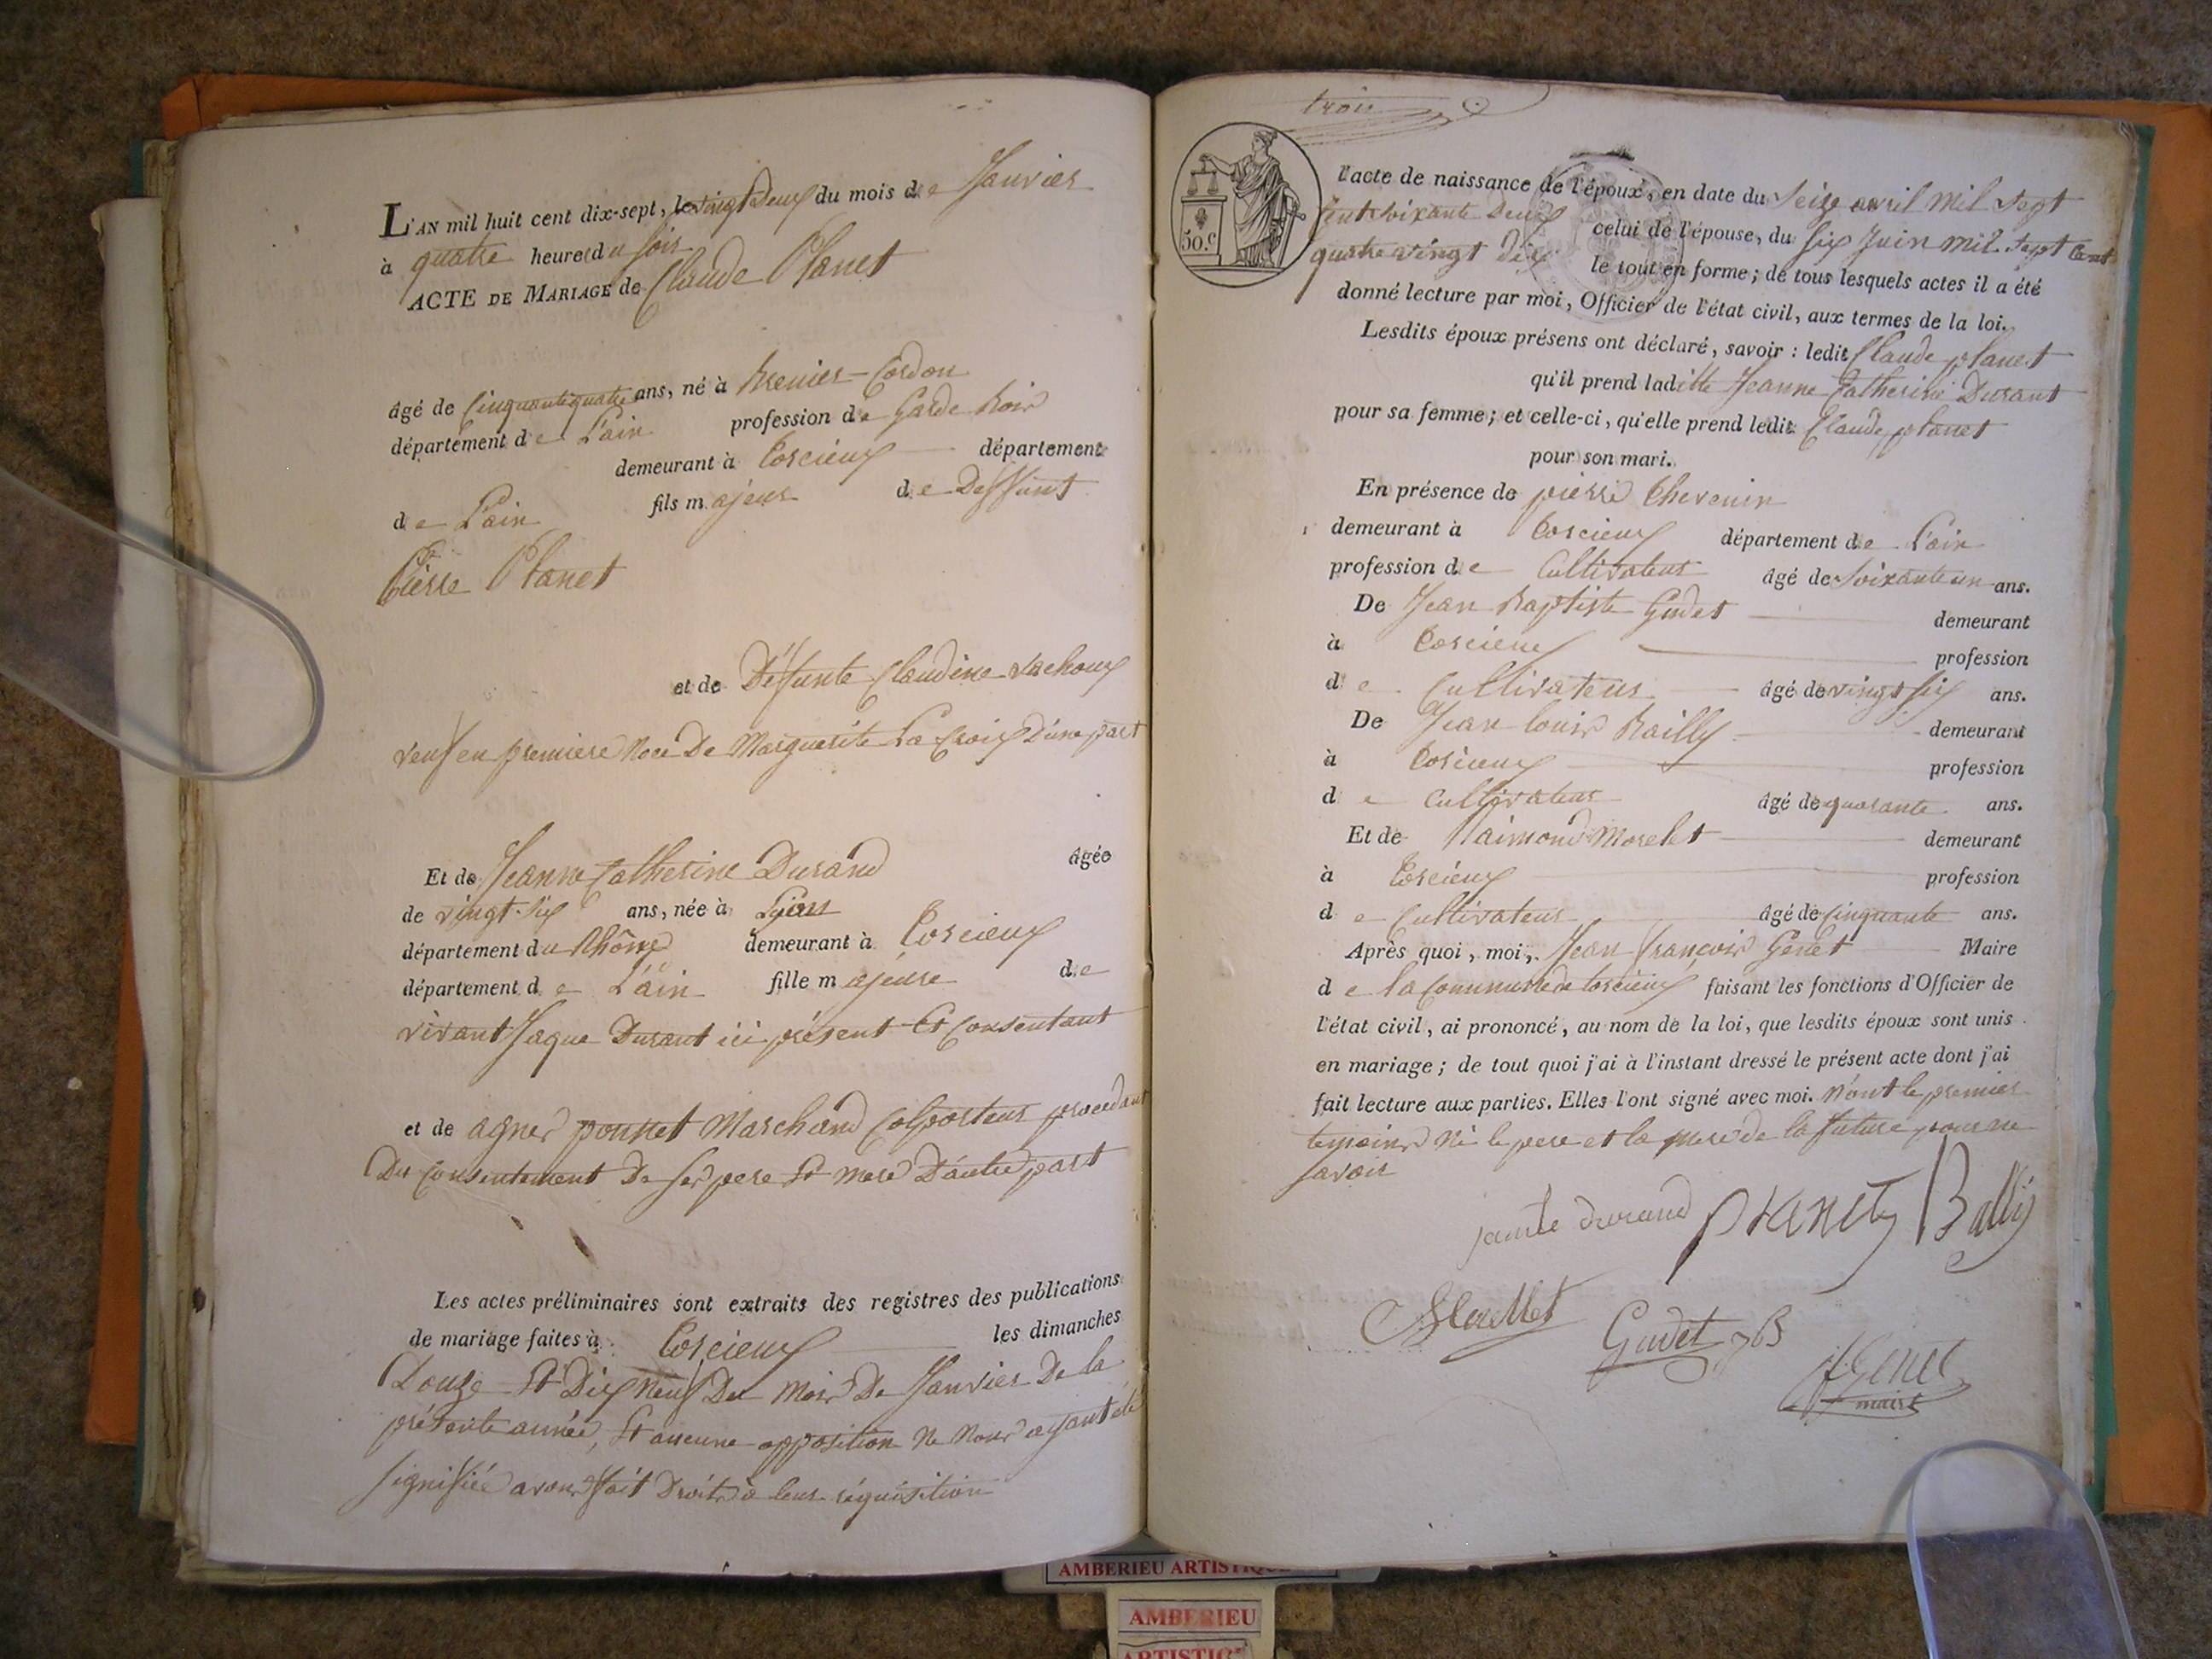 L'AN mil huit cent dix-sept, le vingt Deux du mois de Janvier
à quatre heure du soir
ACTE DE MARIAGE de Claude Planet
âgé de Cinquantequatre ans, né à Brenier-Cordon
département de L'ain profession de Garde Bois
demeurant à Torcieux département
de L'ain fils majeur de Deffunt
Pierre Planet
et de Défunte Claudine Vachoux
veuf en premiere Noce De Marguerite La Croix D'une part
Et de Jeanne Catherine Durand âgée
de vingt-six ans, née à Lyon
département du Rhône demeurant à Torcieux
département de L'ain fille majeure de
vivant Jaque Durant ici présent Et Consentant
et de agnes ponnet Marchand Colporteur procedant
Du Consentement De ses pere Et mere D'autre part
Les actes préliminaires sont extraits des registres des publications
de mariage faites à Torcieux les dimanches
Douze Et Dix Neuf Du Mois De Janvier De la
présente année, Et aucune opposition Ne Nous ayant été
signifiée avons fait Droit à leur réquisition
trois
50.c
l'acte de naissance de l'époux, en date du Seize avril Mil Sept
Cent soixante Deux celui de l'épouse, du six Juin mil Sept Cent
quatre vingt dix le tout en forme; de tous lesquels actes il a été
donné lecture par moi, Officier de l'état civil, aux termes de la loi.
Lesdits époux présens ont déclaré, savoir : ledit Claude planet
qu'il prend laditte Jeanne Catherine Durant
pour sa femme; et celle-ci, qu'elle prend ledit Claude planet
pour son mari.
En présence de pierre Thevenin
demeurant à Torcieux département de L'ain
profession de Cultivateur âgé de Soixante un ans.
De Jean Baptiste Gudet demeurant
à Torcieux profession
de Cultivateur âgé de vingt six ans.
De Jean louis Bailly demeurant
à Torcieux profession
de Cultivateur âgé de quarante ans.
Et de Raimond Morelet demeurant
à Torcieux profession
de Cultivateur âgé de Cinquante ans.
Après quoi, moi, Jean François Genet Maire
de la Commune de Torcieux faisant les fonctions d'Officier de
l'état civil, ai prononcé, au nom de la loi, que lesdits époux sont unis
en mariage; de tout quoi j'ai à l'instant dressé le présent acte dont j'ai
fait lecture aux parties. Elles l'ont signé avec moi. N'ont le premier
temoins Ni le pere et la mere de la future pour ne
savoir
durand planet Bally
Gudet JB
JfGenet
maire
AMBERIEU ARTISTIQUE
AMBERIEU
ARTISTIQ